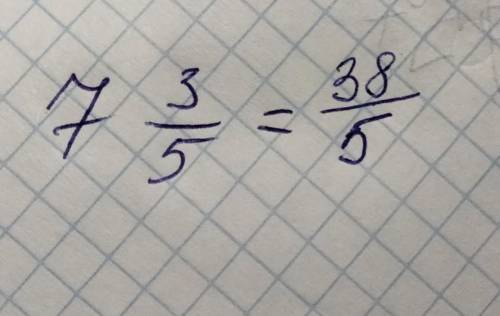 7 3/5 = 38/5